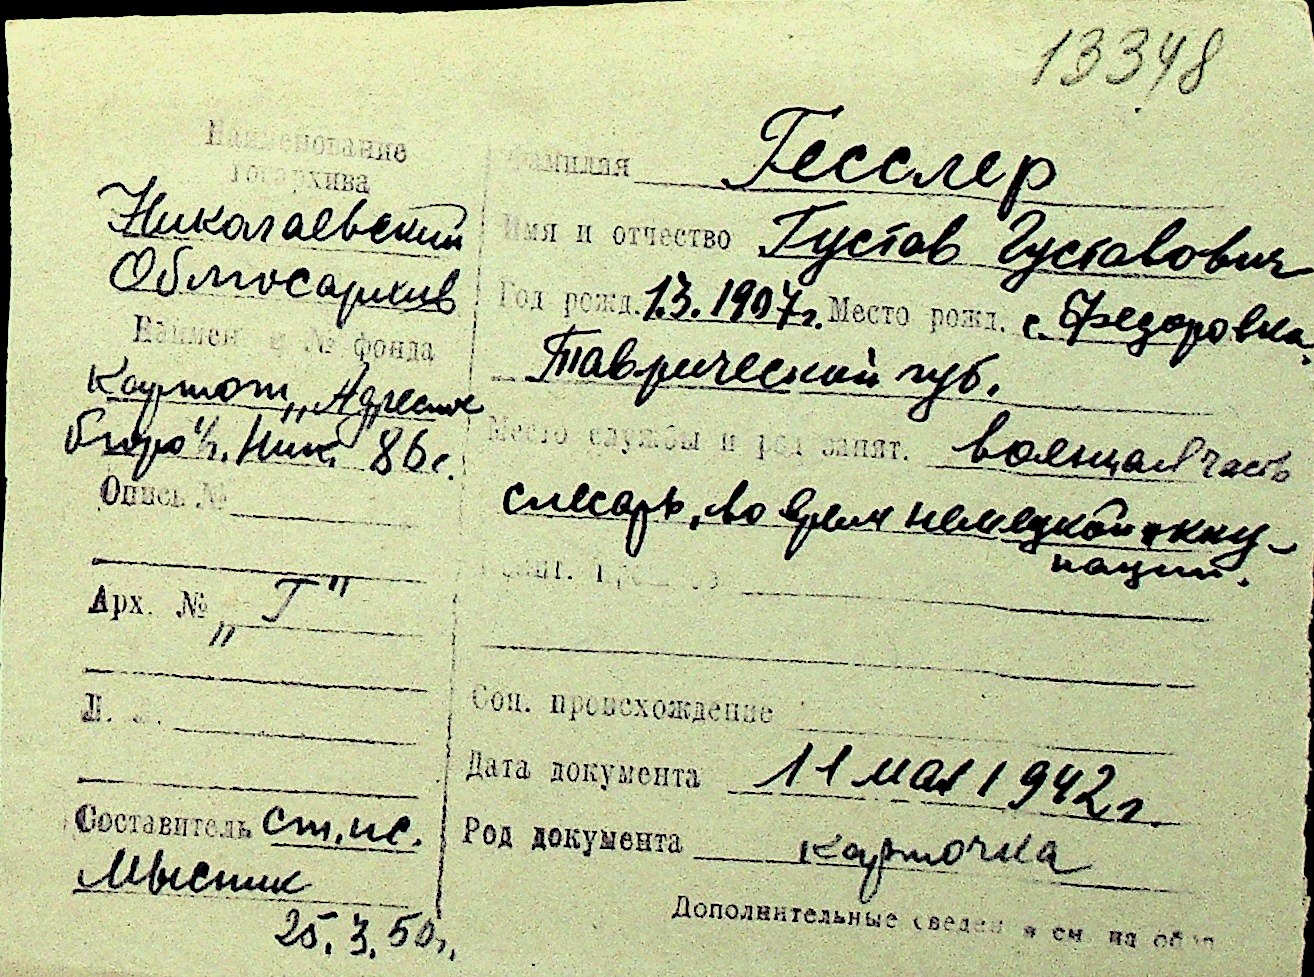 13348
Наименование
госархива
Николаевский
Облгосархив
Наимен и № фонда
Картот. „Адресное
бюро" г. Ник. 86 с.
Опись №
Арх. № „Г"
Составитель ст. ис.
Мысник
25.3.50 г.
Фамилия Гесслер
Имя и отчество Густав Густавович
Год рожд. 1.3.1907 г. Место рожд. с. Федоровка
Таврической губ.
Место службы и род занят. воинская часть
слесарь, во время немецкой окку-
пации.
Соц. происхождение
Дата документа 11 мая 1942 г.
Род документа карточка
Дополнительные сведен я см на об